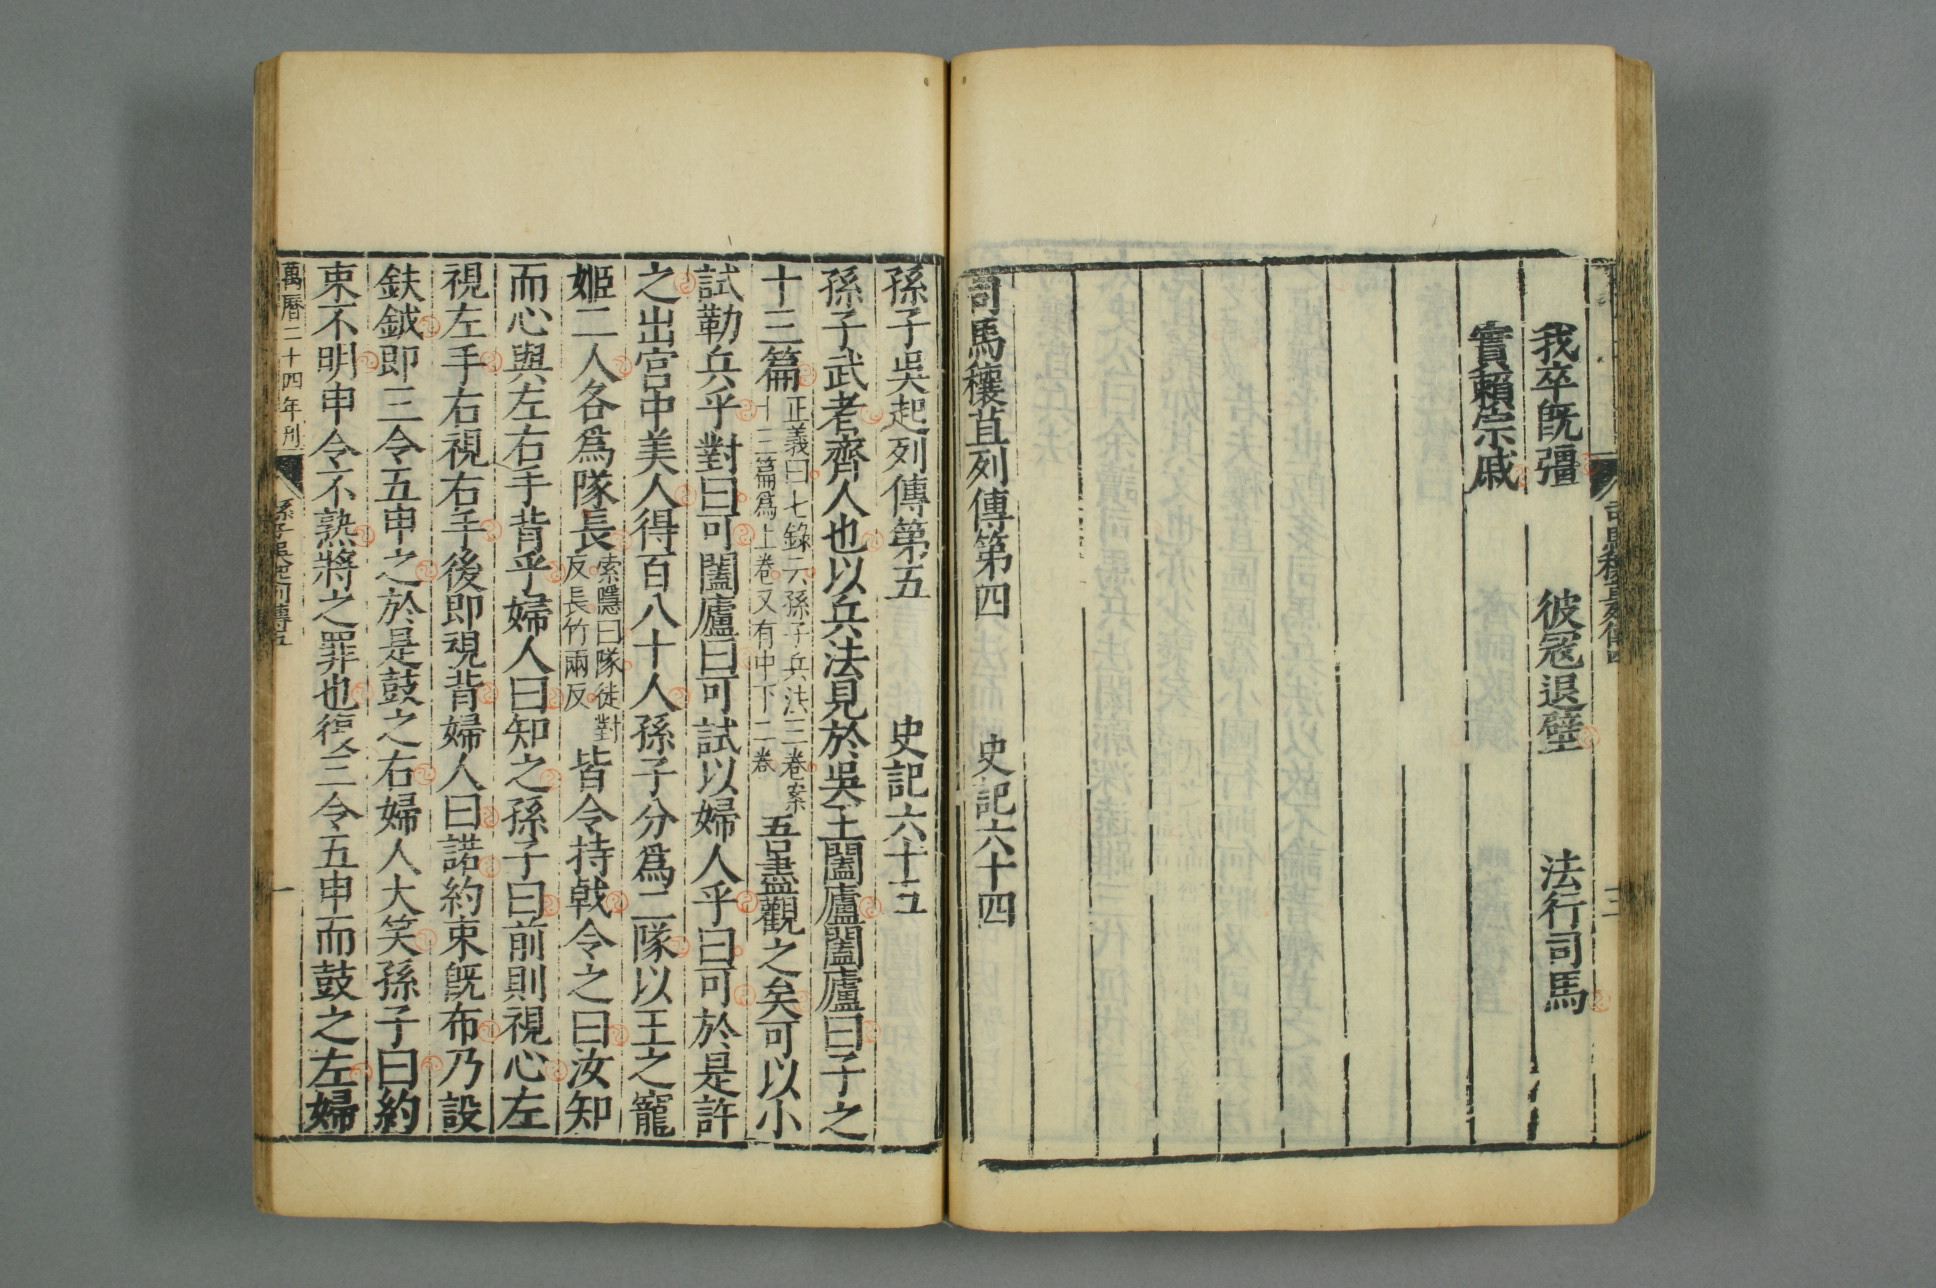 我卒既彊　彼寇退壁　法行司馬
實賴宗戚
司馬穰苴列傳第四　史記六十四
孫子吳起列傳第五　史記六十五
孫子武者齊人也以兵法見於吳王闔廬闔廬曰子之
十三篇
正義曰七錄云孫子兵法三卷案
十三篇爲上卷又有中下二卷
吾盡觀之矣可以小
試勒兵乎對曰可闔廬曰可試以婦人乎曰可於是許
之出宮中美人得百八十人孫子分爲二隊以王之寵
姬二人各爲隊長
索隱曰隊徒對
反長竹兩反
皆令持戟令之曰汝知
而心與左右手背乎婦人曰知之孫子曰前則視心左
視左手右視右手後即視背婦人曰諾約束既布乃設
鈇鉞即三令五申之於是鼓之右婦人大笑孫子曰約
束不明申令不熟將之罪也復三令五申而鼓之左婦
萬曆二十四年刊
孫子吳起列傳五
一